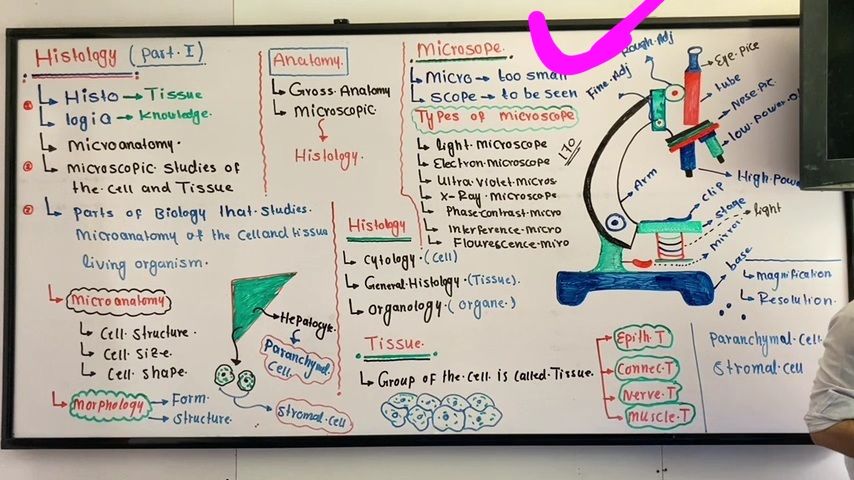 Histology (part.I)
Histo → Tissue
logia → Knowledge.
microanatomy.
microscopic studies of
the cell and Tissue
parts of Biology that studies.
Microanatomy of the cell and tissue
living organism.
Microanatomy
Cell structure.
Cell size.
Cell shape.
morphology → Form.
Structure.
Hepatocyte.
Paranchymal
Cell.
Stromal.cell
Anatomy.
Gross.Anatomy
Microscopic.
Histology.
Histology
cytology.(cell)
General.Histology.(Tissue).
organology.(organe.)
Tissue.
Group of the cell is called.Tissue.
Epith.T
Connec.T
Nerve.T
muscle.T
Microsope.
Micro → too small
scope → to be seen
Types of microscope
light.microscope
Electron.microscope
170
Ultra.violet.micros.
X-Ray.microscope
Phase.contrast.micro
Interference.micro
Flourescence.miro
Rough.Adj
Fine.Adj
Eye.pice
tube
Nose.pic
low.power.o
High.powe
Arm
clip
stage
light
mirror
base
magnification
Resolution.
Paranchymal.cell
Stromal.cell